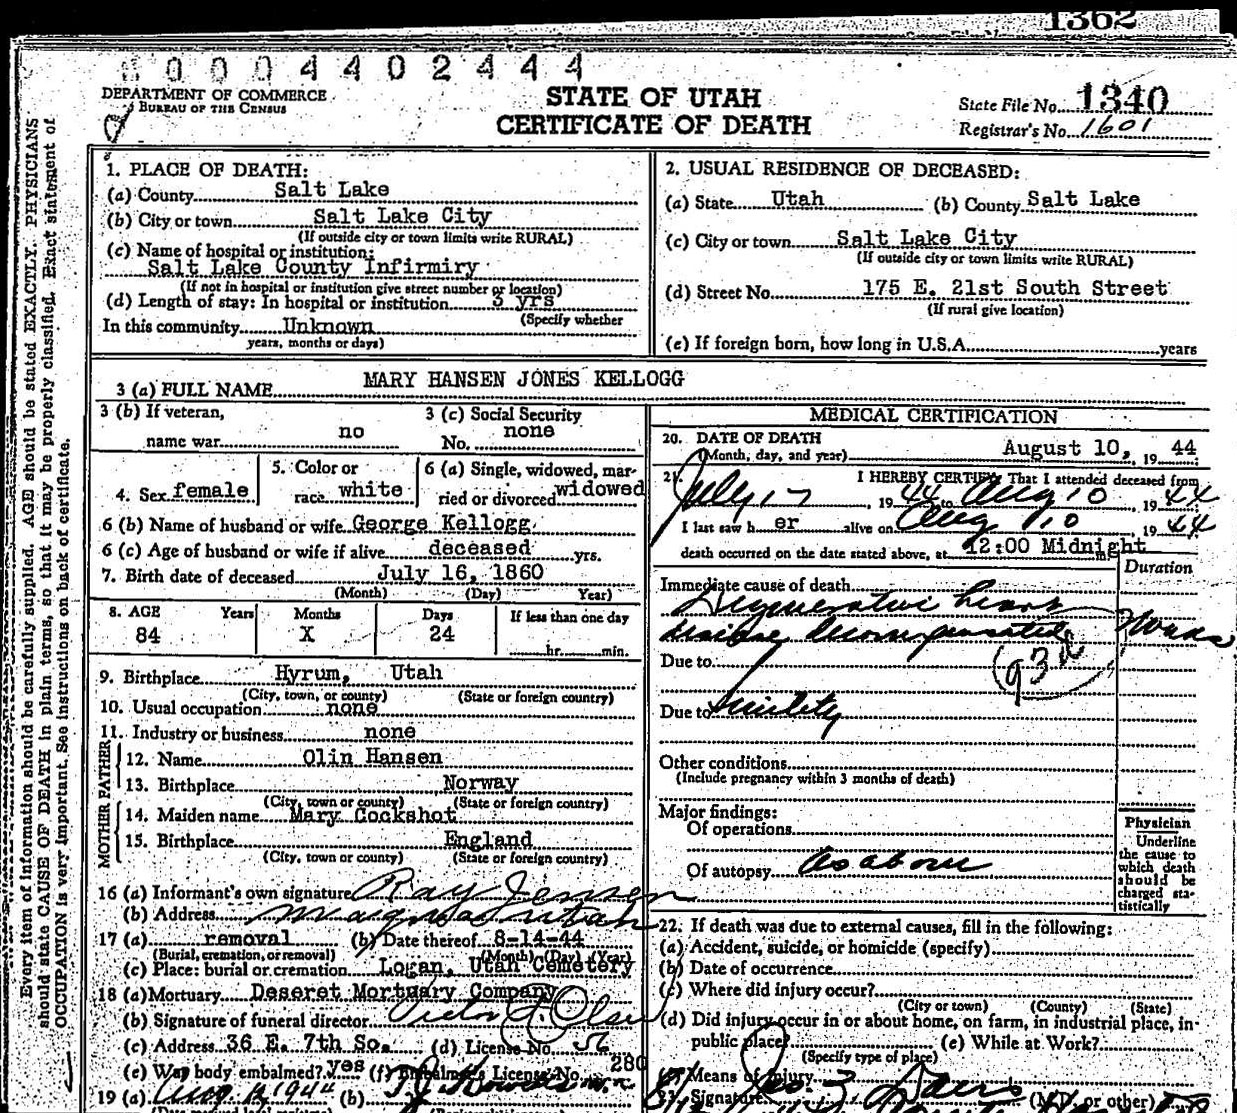 1362
0 0 0 4 4 0 2 4 4 4
DEPARTMENT OF COMMERCE
BUREAU OF THE CENSUS
STATE OF UTAH
CERTIFICATE OF DEATH
State File No. 1340
Registrar's No. 1601
Every item of information should be carefully supplied. AGE should be stated EXACTLY. PHYSICIANS
should state CAUSE OF DEATH in plain terms, so that it may be properly classified. Exact statement of
OCCUPATION is very important. See instructions on back of certificate.
1. PLACE OF DEATH:
(a) County Salt Lake
(b) City or town Salt Lake City
(If outside city or town limits write RURAL)
(c) Name of hospital or institution:
Salt Lake County Infirmiry
(If not in hospital or institution give street number or location)
(d) Length of stay: In hospital or institution 3 yrs
(Specify whether
In this community Unknown
years, months or days)
2. USUAL RESIDENCE OF DECEASED:
(a) State Utah (b) County Salt Lake
(c) City or town Salt Lake City
(If outside city or town limits write RURAL)
(d) Street No. 175 E. 21st South Street
(If rural give location)
(e) If foreign born, how long in U.S.A. years
3 (a) FULL NAME MARY HANSEN JONES KELLOGG
3 (b) If veteran,
name war no
3 (c) Social Security
No. none
4. Sex female
5. Color or
race white
6 (a) Single, widowed, mar-
ried or divorced widowed
6 (b) Name of husband or wife George Kellogg
6 (c) Age of husband or wife if alive deceased yrs.
7. Birth date of deceased July 16, 1860
(Month) (Day) Year)
8. AGE Years Months Days If less than one day
84 X 24 hr. min.
9. Birthplace Hyrum, Utah
(City, town, or county) (State or foreign country)
10. Usual occupation none
11. Industry or business none
FATHER
12. Name Olin Hansen
13. Birthplace Norway
(City, town or county) (State or foreign country)
MOTHER
14. Maiden name Mary Cockshot
15. Birthplace England
(City, town or county) (State or foreign country)
16 (a) Informant's own signature Ray Jensen
(b) Address Magna Utah
17 (a) removal (b) Date thereof 8-14-44
(Burial, cremation, or removal) (Month) (Day) (Year)
(c) Place: burial or cremation Logan, Utah Cemetery
18 (a) Mortuary Deseret Mortuary Company
(b) Signature of funeral director Victor L. Olsen
(c) Address 36 E. 7th So. (d) License No. 56
(e) Was body embalmed? yes (f) Embalmer's License No. 280
19 (a) Aug 12 1944 (b)
MEDICAL CERTIFICATION
20. DATE OF DEATH
(Month, day, and year) August 10, 19 44
21. I HEREBY CERTIFY That I attended deceased from
July 17, 19 44 to Aug 10 19 44
I last saw h er alive on Aug 10 19 44
death occurred on the date stated above, at 12:00 Midnight m.
Duration
Immediate cause of death
Degenerative heart
disease decompensated
Due to (93d)
Due to Senility
Other conditions
(Include pregnancy within 3 months of death)
Major findings:
Of operations
Of autopsy As above
Physician
Underline
the cause to
which death
should be
charged sta-
tistically
22. If death was due to external causes, fill in the following:
(a) Accident, suicide, or homicide (specify)
(b) Date of occurrence
(c) Where did injury occur?
(City or town) (County) (State)
(d) Did injury occur in or about home, on farm, in industrial place, in
public place? (e) While at Work?
(Specify type of place)
Means of Injury
23. Signature (M.D. or other)